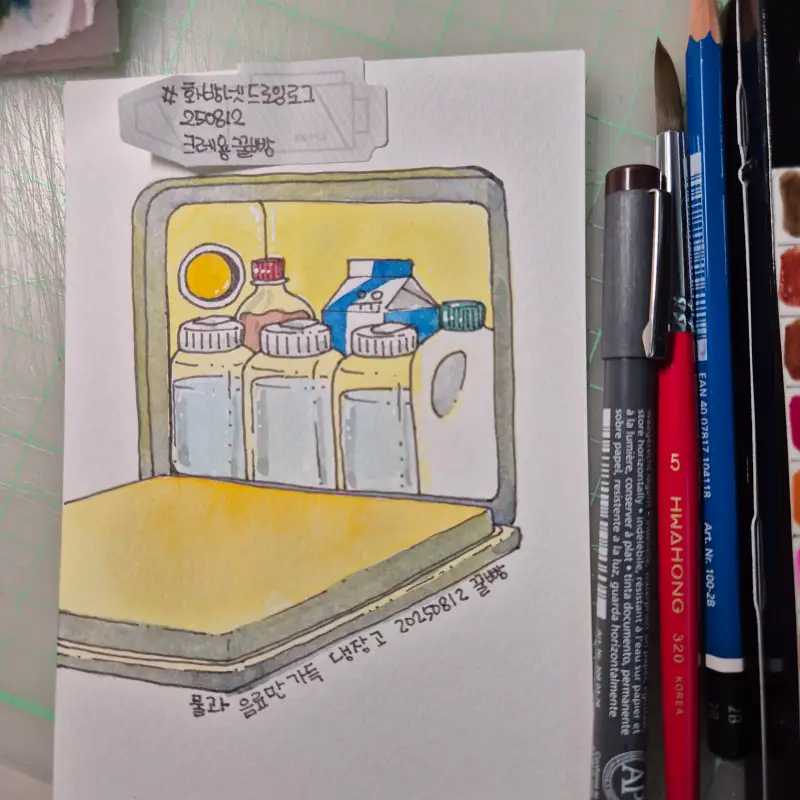 #화방넷드로잉로그
250812
크레용꿀빵
물과 음료만 가득 냉장고 20250812 꿀빵
store horizontally • indelebile, résistant à l'eau sur papier et
à la lumière, conserver à plat • tinta documento, permanente
sobre papel, resistente a la luz, guarda horizontalmente
5 HWAHONG 320 KOREA
EAN 40 07817 104118
Art. Nr. 100-2B
2B
2B